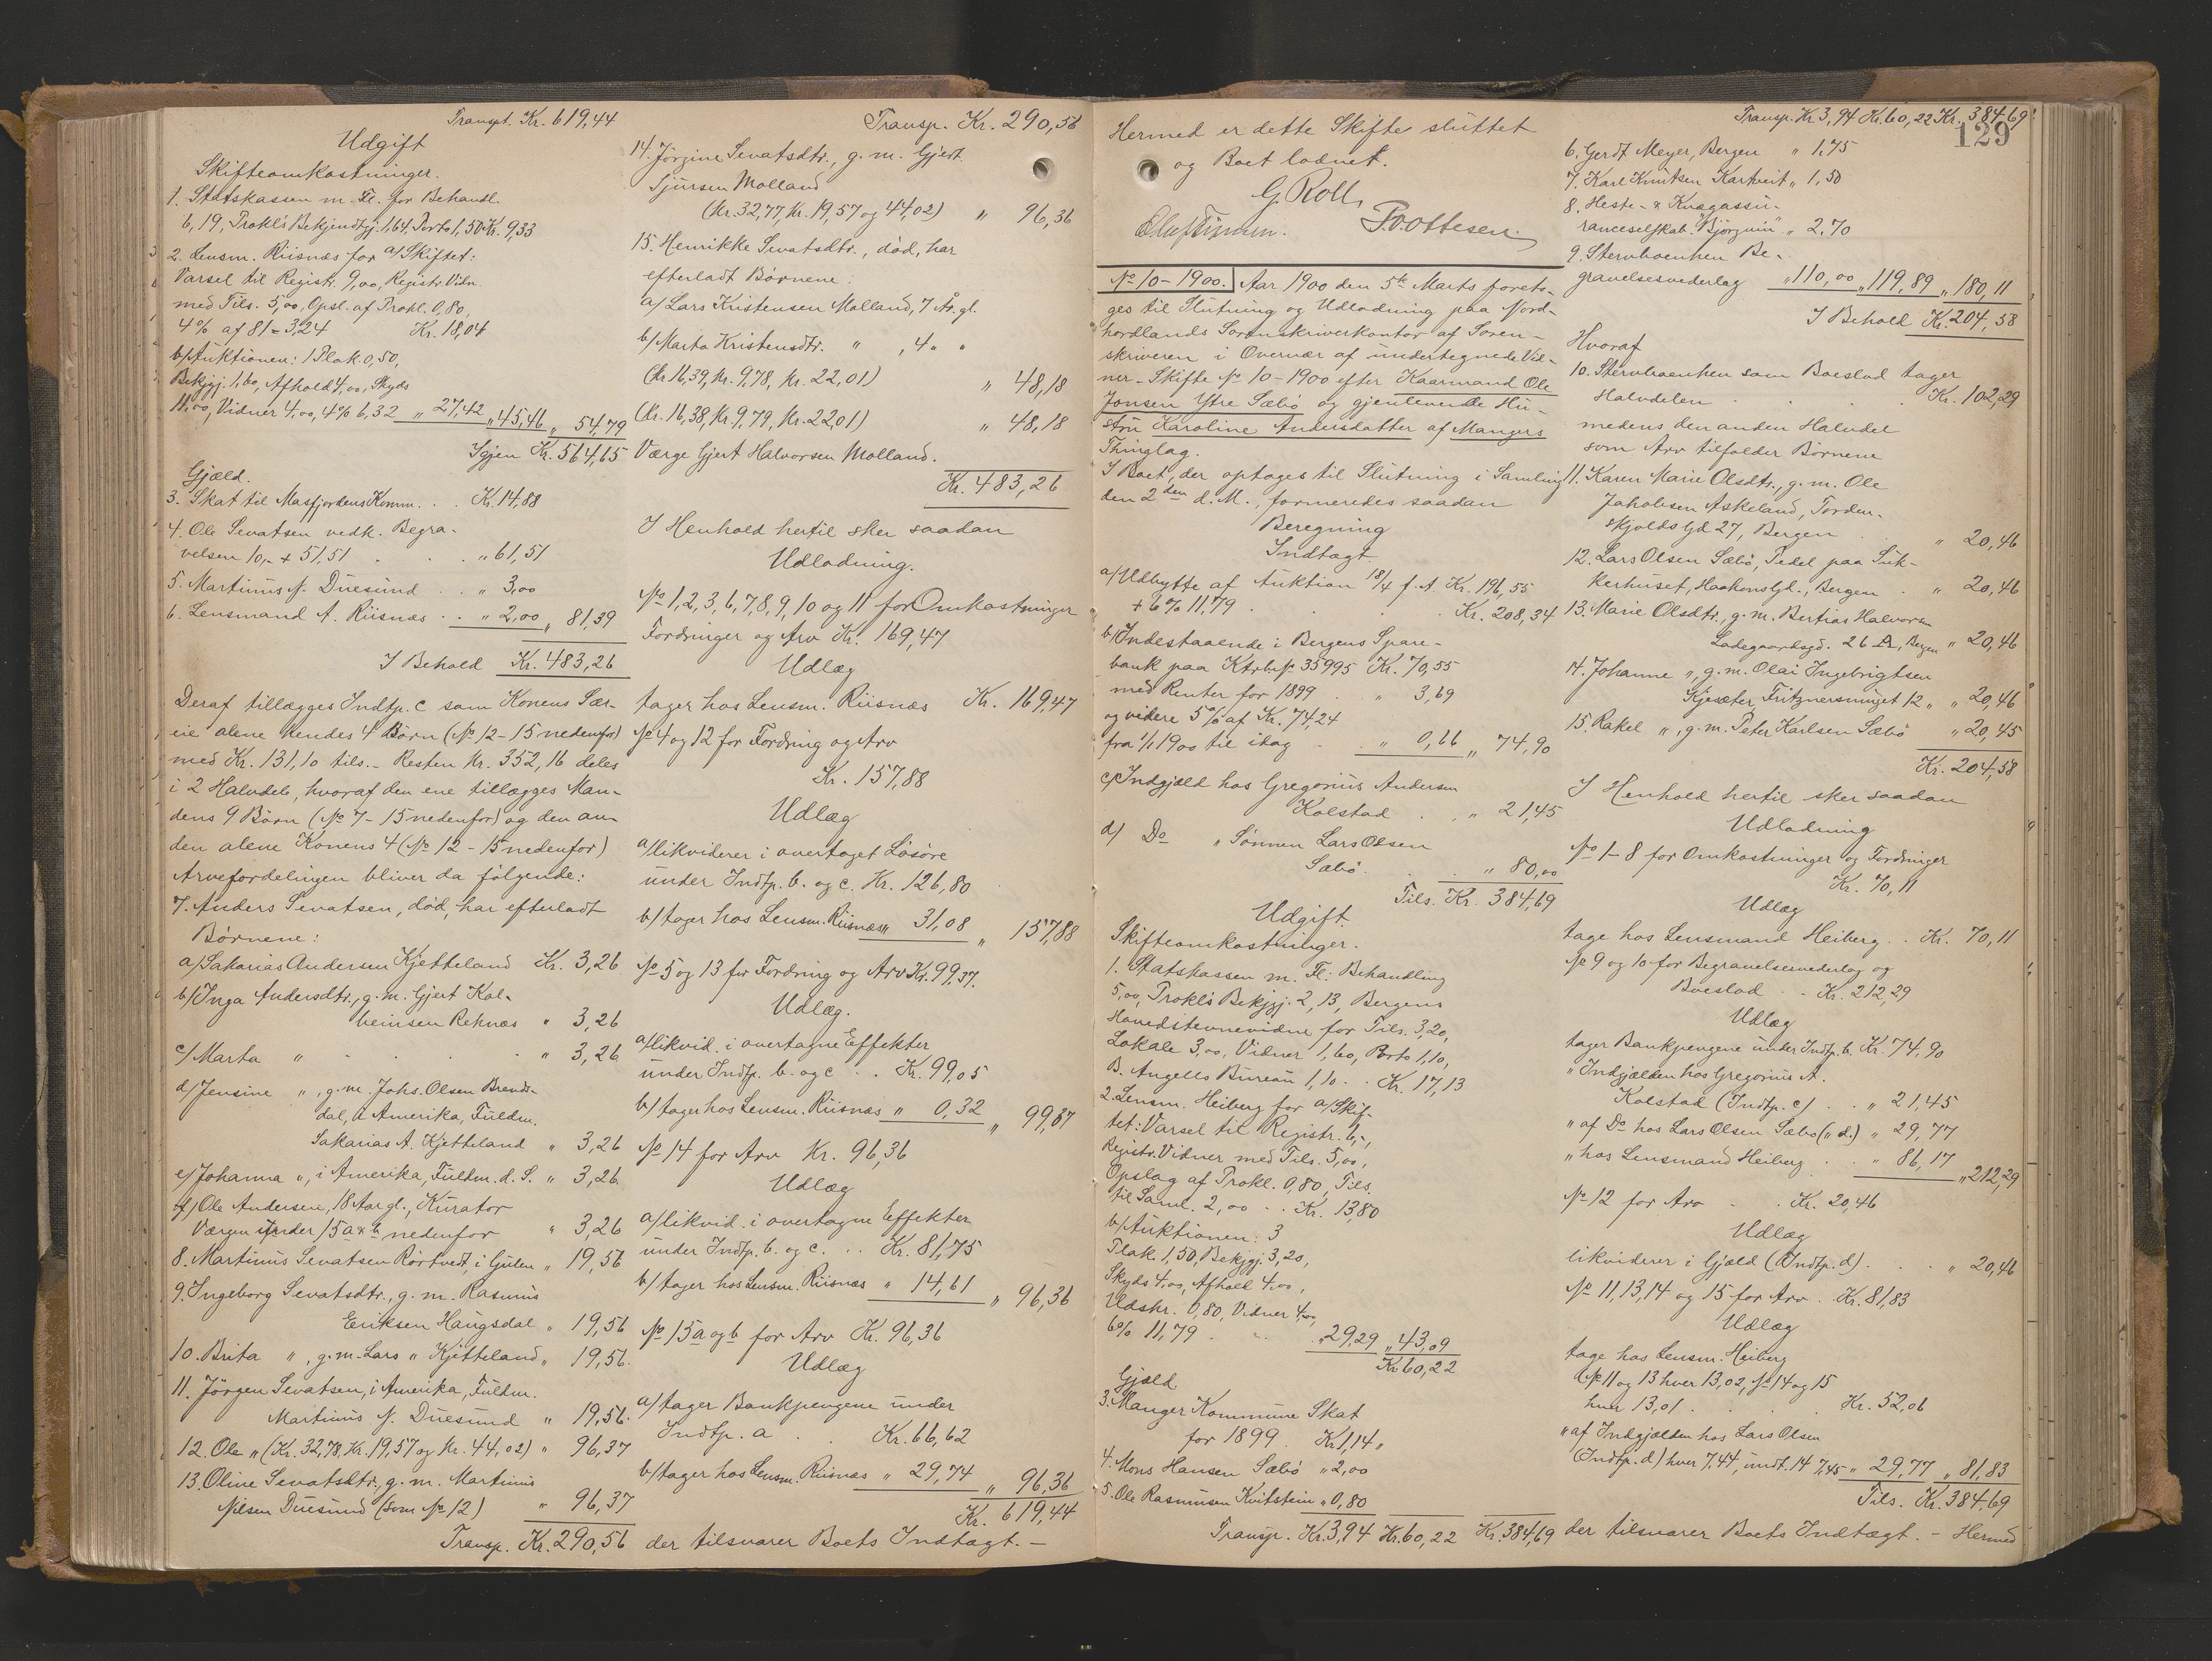 Transpt. Kr. 619,44
Udgift
Skifteomkostninger.
1. Statskassen m. Fl. for Behandl.
6,19, Prokl's Bekjendtgj. 1,64, Porto 1,50 Kr. 9,33
2. Lensm. Riisnæs for a/ Skiftet:
Varsel til Registr. 9,00, Registr. Vidn.
med Tils. 5,00, Opsl. af Prokl. 0,80,
4% af 81 = 3,24 Kr. 18,04
b/ Auktionen: 1 Plak. 0,50,
Bekjgj. 1,60, Afhold 4,00, Skyds
11,00, Vidner 4,00, 4% 6,32 " 27,42 " 45,46 " 54,79
Igjen Kr. 564,65
Gjæld.
3. Skat til Masfjordens Komm. . . Kr. 14,88
4. Ole Sevatsen vedk. Begra-
velsen 10,- + 51,51 . . . " 61,51
5. Martinus N. Duesund . . " 3,00
6. Lensmand A. Riisnæs . . " 2,00 " 81,39
I Behold Kr. 483,26
Deraf tillægges Indtp. c som Konens Sær-
eie alene hendes 4 Børn (No 12-15 nedenfor)
med Kr. 131,10 tils. - Resten Kr. 352,16 deles
i 2 Halvdele, hvoraf den ene tillægges Man-
dens 9 Børn (No 7-15 nedenfor) og den an-
den alene Konens 4 (No 12-15 nedenfor)
Arvefordelingen bliver da følgende:
7. Anders Sevatsen, død, har efterladt
Børnene:
a/ Sakarias Andersen Kjetteland Kr. 3,26
b/ Inga Andersdtr., g.m. Gjert Kol-
beinsen Reknæs " 3,26
c/ Marta " . . . . " 3,26
d/ Jensine ", g.m. Johs. Olsen Brends-
dal, i Amerika, Fuldm.
Sakarias A. Kjetteland " 3,26
e/ Johanna ", i Amerika, Fuldm. d. S. " 3,26
f/ Ole Andersen, 18 Aar gl., Kurator
Værgen under 15 a & b nedenfor " 3,26
8. Martinus Sevatsen Rørtvedt, i Gulen " 19,56
9. Ingeborg Sevatsdtr., g.m. Rasmus
Eriksen Haugsdal " 19,56
10. Brita ", g.m. Lars " Kjetteland " 19,56.
11. Jørgen Sevatsen, i Amerika, Fuldm.
Martinus N. Duesund " 19,56.
12. Ole " (Kr. 32,78, Kr. 19,57 og Kr. 44,02) " 96,37
13. Oline Sevatsdtr., g.m. Martinus
Nilsen Duesund (som No 12) " 96,37
Transp. Kr. 290,56
Transp. Kr. 290,56
14. Jørgine Sevatsdtr., g.m. Gjert
Sjursen Molland
(Kr. 32,77, Kr. 19,57 og 44,02) " 96,36
15. Henrikke Sevatsdtr., død, har
efterladt Børnene:
a/ Lars Kristensen Molland, 7 År. gl.
b/ Marta Kristensdtr. " , 4 " "
(Kr. 16,39, Kr. 9,78, Kr. 22,01) " 48,18
(Kr. 16,38, Kr. 9,79, Kr. 22,01) " 48,18
Værge Gjert Halvorsen Molland.
Kr. 483,26
I Henhold hertil sker saadan
Udlodning.
No 1, 2, 3, 6, 7, 8, 9, 10 og 11 for Omkostninger
Fordringer og Arv Kr. 169,47
Udlæg
tager hos Lensm. Riisnæs Kr. 169,47
No 4 og 12 for Fordring og Arv
Kr. 157,88
Udlæg
a/ likviderer i overtaget Løsøre
under Indtp. b. og c. Kr. 126,80
b/ tager hos Lensm. Riisnæs " 31,08 " 157,88
No 5 og 13 for Fordring og Arv Kr. 99,37.
Udlæg.
a/ likvid. i overtagne Effekter
under Indtp. b. og c . . Kr. 99,05
b/ tager hos Lensm. Riisnæs " 0,32 " 99,37
No 14 for Arv Kr. 96,36
Udlæg
a/ likvid. i overtagne Effekter
under Indtp. b. og c. . . Kr. 81,75
b/ tager hos Lensm. Riisnæs " 14,61 " 96,36
No 15 a og b for Arv Kr. 96,36
Udlæg
a/ tager Bankpengene under
Indtp. a . . Kr. 66,62
b/ tager hos Lensm. Riisnæs " 29,74 " 96,36
Kr. 619,44
der tilsvarer Boets Indtægt. -
Hermed er dette Skifte sluttet
og Boet lodnet.
G. Roll
P. Ottesen
No 10 - 1900. Aar 1900 den 5te Marts foreto-
ges til Slutning og Udlodning paa Nord-
hordlands Sorenskriverkontor af Soren-
skriveren i Overvær af undertegnede Vid-
ner - Skifte No 10-1900 efter Kaarmand Ole
Jonsen Ytre Sæbø og gjenlevende Hu-
stru Karoline Andersdatter af Mangers
Thinglag.
I Boet, der optages til Slutning i Samling
den 2den d. M., formeredes saadan
Beregning
Indtægt.
a/ Udbytte af Auktion 18/4 f. A. Kr. 196,55
+ 6% 11,79 . . . Kr. 208,34
b/ Indestaaende i Bergens Spare-
bank paa Ktrb. No 35995 Kr. 70,55
med Renter for 1899 . " 3,69
og videre 5% af Kr. 74,24
fra 1/1 1900 til idag . . " 0,66 " 74,90
c/ Indgjæld hos Gregorius Andersen
Kolstad . . " 21,45
d/ Do " Sønnen Lars Olsen
Sæbø . . . " 80,00
Tils. Kr. 384,69
Udgift.
Skifteomkostninger.
1. Statskassen m. Fl. Behandling
5,00, Prokl's Bekjgj. 2,13, Bergens
Hovedstevnevidne for Tils. 3,20,
Lokale 3,00, Vidner 1,60, Porto 1,10,
B. Angells Bureau 1,10 . . Kr. 17,13
2. Lensm. Heiberg for a/ Skif-
tet: Varsel til Registr. 6,-,
Registr. Vidner med Tils. 5,00,
Opslag af Prokl. 0,80, Tils.
til Saml. 2,00 . . Kr. 13,80
b/ Auktionen: 3
Plak. 1,50, Bekjgj. 3,20,
Skyds 4,00, Afhold 4,00,
Udskr. 0,80, Vidner 4,00,
6% 11,79 . . . " 29,29 " 43,09
Kr. 60,22
Gjæld
3. Manger Kommune Skat
for 1899 . Kr. 1,14 "
4. Mons Hansen Sæbø " 2,00
5. Ole Rasmusen Kvitstein " 0,80
Transp. Kr. 3,94 Kr. 60,22 Kr. 384,69
Transp. Kr. 3,94 Kr. 60,22 Kr. 384,69
129
6. Gerdt Meyer, Bergen " 1,75
7. Karl Knutsen Kartveit " 1,50
8. Heste- & Kvægassu-
ranceselskab. "Bjørgvin" " 2,70
9. Stervboenken Be-
gravelsesvederlag " 110,00 " 119,89 " 180,11
I Behold Kr. 204,58
Hvoraf
10. Stervboenken som Boeslod tager
Halvdelen . . . Kr. 102,29
medens den anden Halvdel
som Arv tilfalder Børnene
11. Karen Marie Olsdtr., g.m. Ole
Jakobsen Askeland, Torden-
skjolds Gd. 27, Bergen . . " 20,46
12. Lars Olsen Sæbø, Pedel paa Suk-
kerhuset, Haakons Gd., Bergen . " 20,46
13. Marie Olsdtr., g.m. Bertias Halvorsen
Ladegaardsgd. 26 A, Bergen " 20,46
14. Johanne ", g.m. Olai Ingebrigtsen
Kjesæter, Fritznersmuget 12 " " 20,46
15. Rakel ", g.m. Peter Karlsen Sæbø " 20,45
Kr. 204,58
I Henhold hertil sker saadan
Udlodning
No 1-8 for Omkostninger og Fordringer
Kr. 70,11
Udlæg
tage hos Lensmand Heiberg . . Kr. 70,11
No 9 og 10 for Begravelsesvederlag og
Boeslod . . Kr. 212,29
Udlæg
tager Bankpengene under Indtp. b. Kr. 74,90
" Indgjælden hos Gregorius A.
Kolstad (Indtp. c) . . " 21,45
" af Do hos Lars Olsen Sæbø (" d.) " 29,77
" hos Lensmand Heiberg . . " 86,17 " 212,29
No 12 for Arv . . Kr. 20,46
Udlæg
likviderer i Gjæld (Indtp. d) . . . " 20,46
No 11, 13, 14 og 15 for Arv . Kr. 81,83
Udlæg
tage hos Lensm. Heiberg
No 11 og 13 hver 13,02, No 14 og 15
hver 13,01 . . . Kr. 52,06
" af Indgjælden hos Lars Olsen
(Indtp. d) hver 7,44, undt. 14 7,45 " 29,77 " 81,83
Tils. Kr. 384,69
der tilsvarer Boets Indtægt. - Hermed